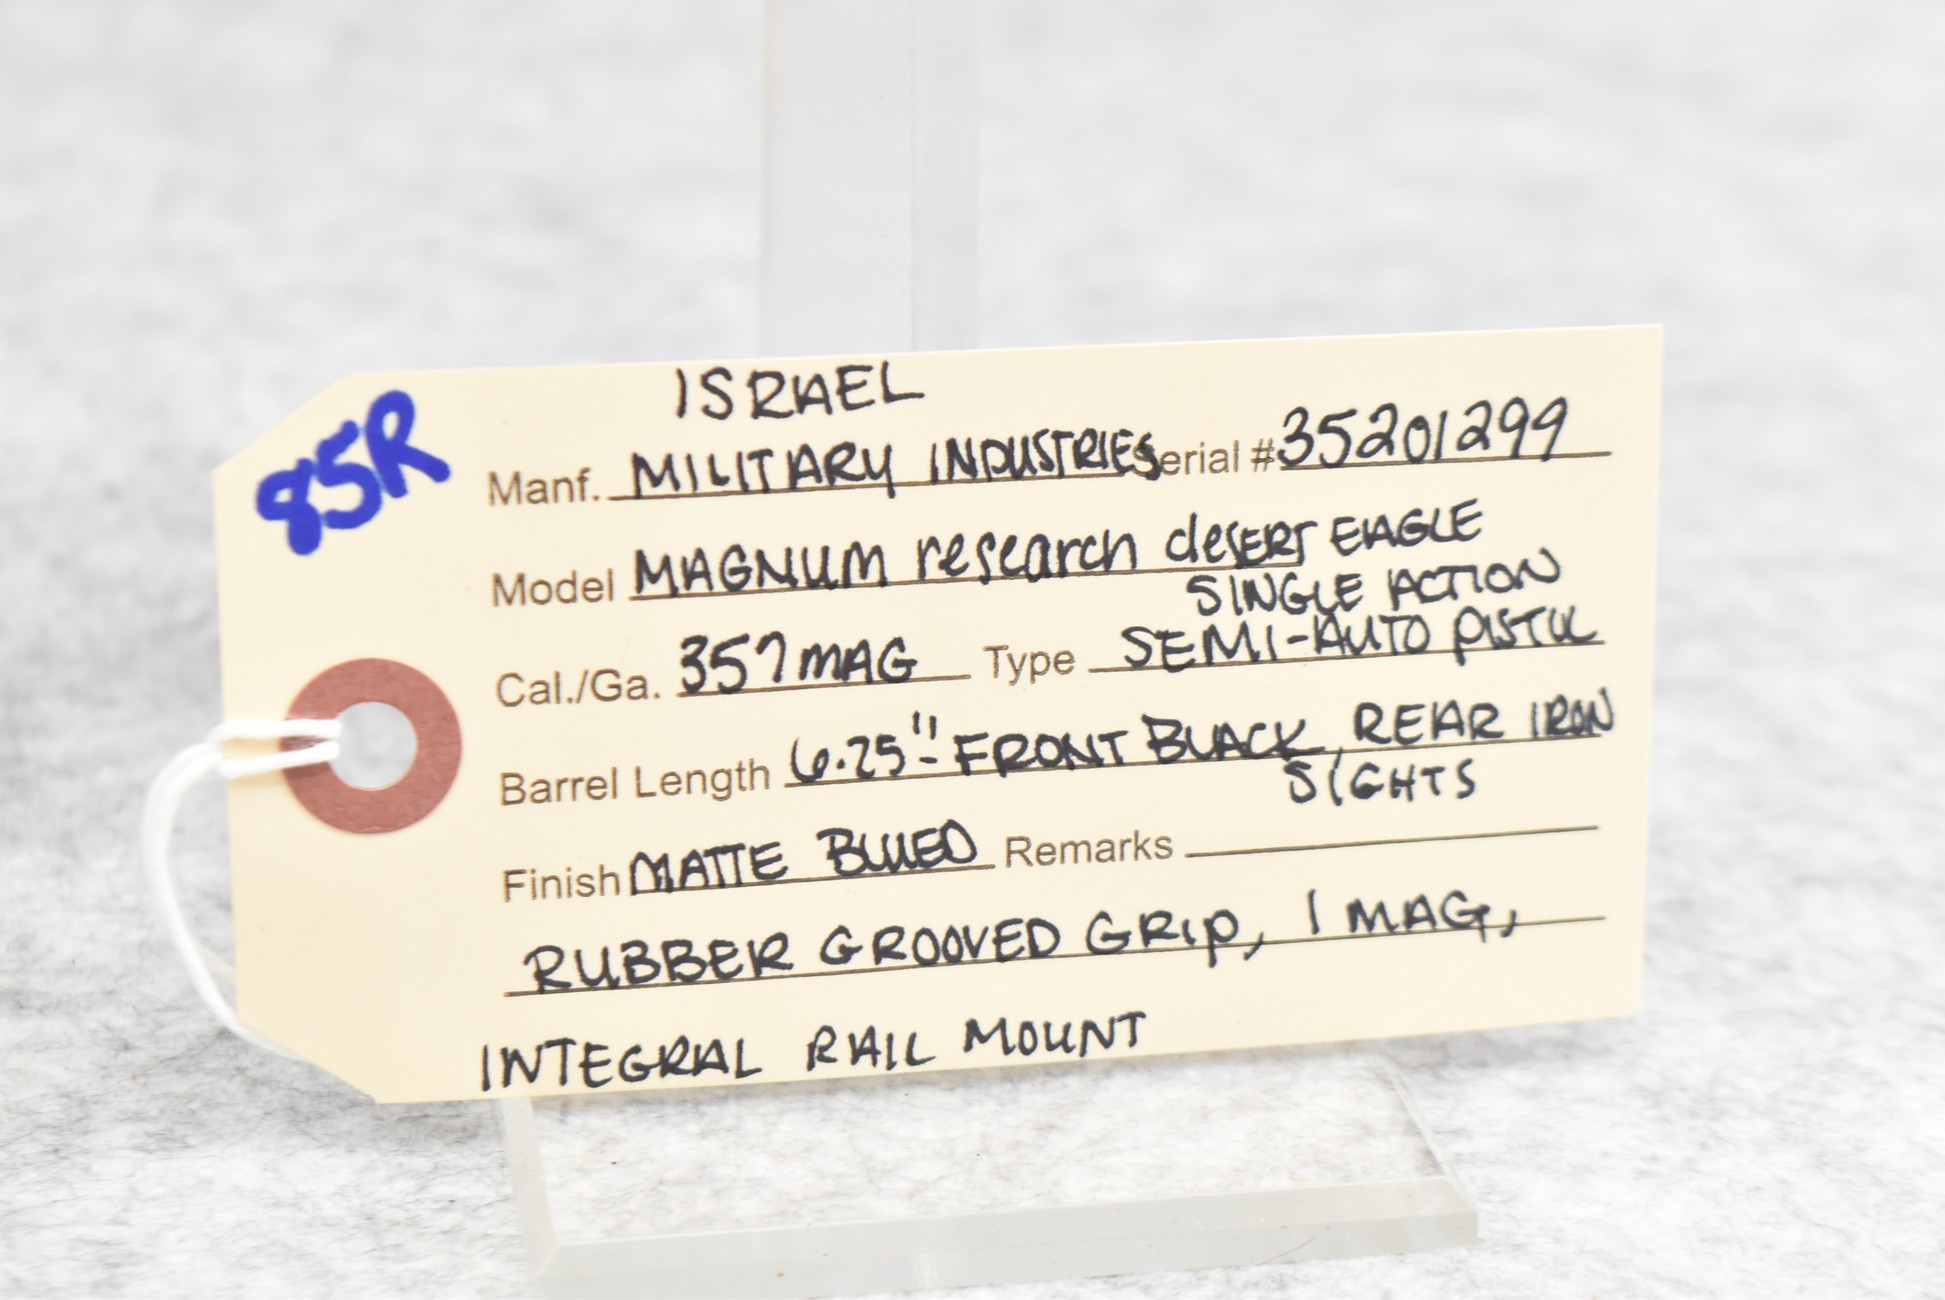 85R
ISRAEL
Manf. MILITARY INDUSTRIES Serial # 35201299
Model MAGNUM research desERT EAGLE
SINGLE ACTION
Cal./Ga. 357 MAG Type SEMI-AUTO PISTOL
Barrel Length 6.25"- FRONT BLACK, REAR IRON
SIGHTS
Finish MATTE BLUED Remarks
RUBBER GROOVED GRIP, 1 MAG,
INTEGRAL RAIL MOUNT